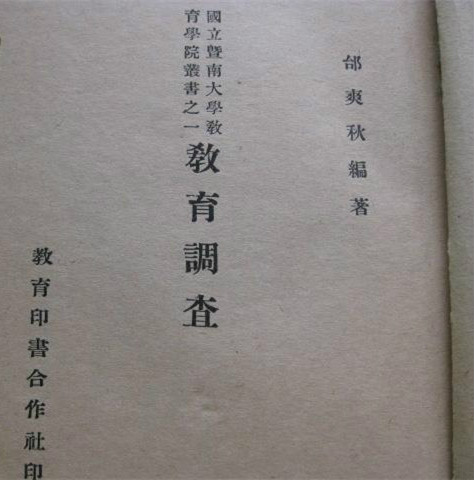 邰爽秋編著
國立暨南大學敎
育學院叢書之一
敎育調查
敎育印書合作社印